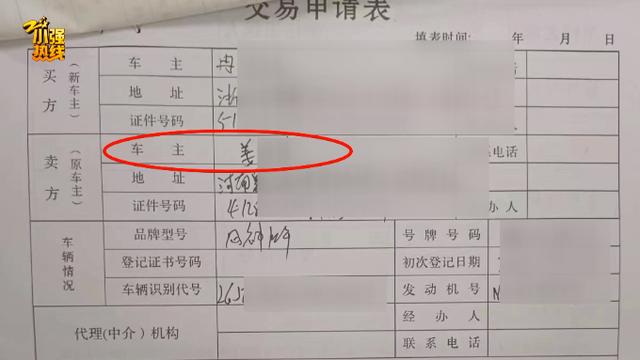 小强热线
交易申请表
填表时间： 年 月 日
买方（新车主）
车主 冉
地址 浙
证件号码 51
卖方（原车主）
车主 姜 电话
地址 河南
证件号码 412 办人
车辆情况
品牌型号 号牌号码
登记证书号码 初次登记日期
车辆识别代号 265 发动机号
代理(中介）机构 经办人
联系电话